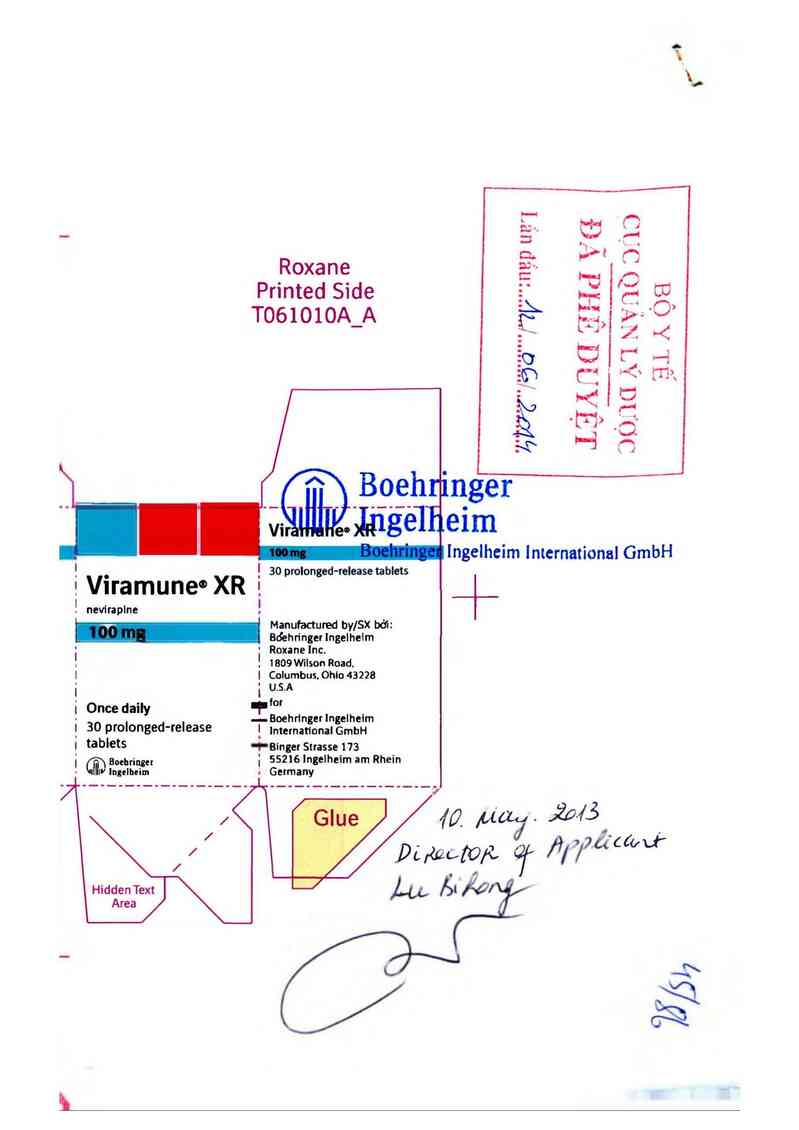 Roxane
Printed Side
T061010A_A
BỘ Y TẾ
CỤC QUẢN LÝ DƯỢC
ĐÃ PHÊ DUYỆT
Lần đầu: 12/06/2014
Boehringer
Ingelheim
Boehringer Ingelheim International GmbH
Viramune® XR
100 mg
30 prolonged-release tablets
Manufactured by/SX bởi:
Boehringer Ingelheim
Roxane Inc.
1809 Wilson Road,
Columbus, Ohio 43228
U.S.A
for
Boehringer Ingelheim
International GmbH
Binger Strasse 173
55216 Ingelheim am Rhein
Germany
Viramune® XR
nevirapine
100 mg
Once daily
30 prolonged-release
tablets
Boehringer
Ingelheim
Glue
Hidden Text
Area
10. May. 2013
Director of Applicant
Lu Bihong